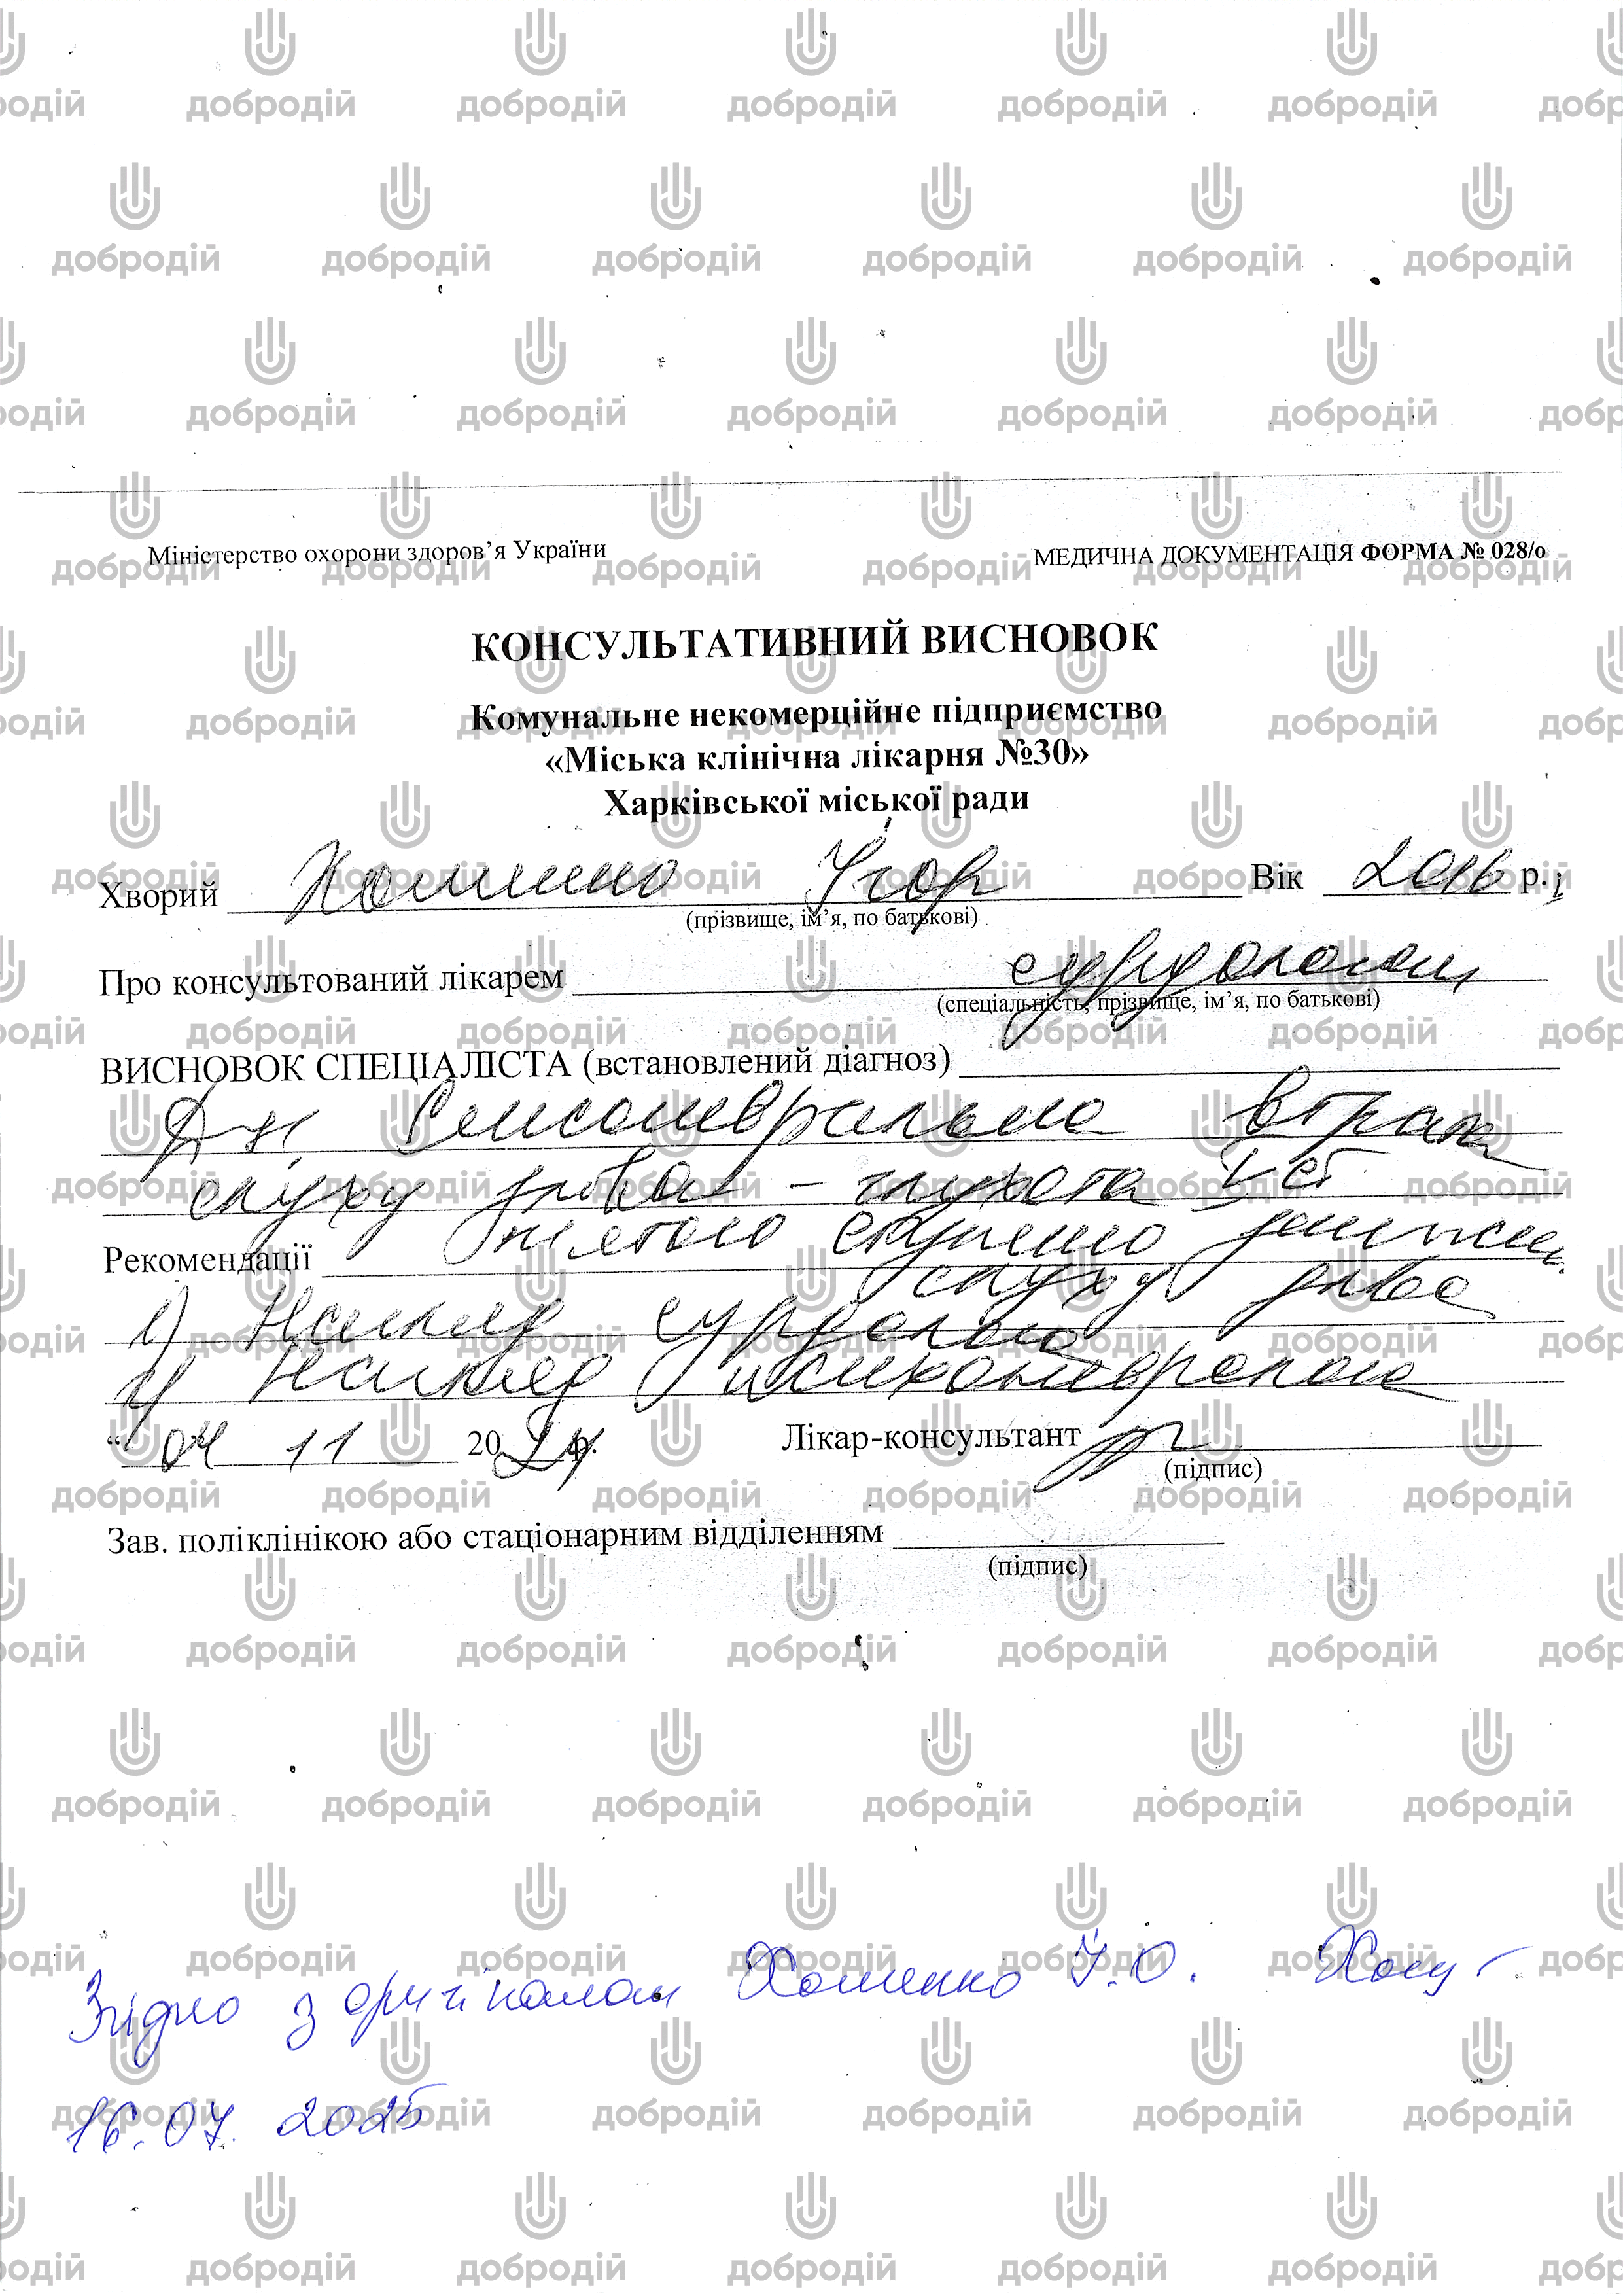 Міністерство охорони здоров’я України
МЕДИЧНА ДОКУМЕНТАЦІЯ ФОРМА № 028/о
КОНСУЛЬТАТИВНИЙ ВИСНОВОК
Комунальне некомерційне підприємство
«Міська клінічна лікарня №30»
Харківської міської ради
Хворий Хоменко Ігор Вік 2016 р.
(прізвище, ім’я, по батькові)
Про консультований лікарем сурдологом
(спеціальність, прізвище, ім’я, по батькові)
ВИСНОВОК СПЕЦІАЛІСТА (встановлений діагноз)
Д-з: Сенсоневральна втрата
слуху двобічна - глухота ст
Рекомендації
слуху
1) Нагляд сурдолога
2) Нагляд психоневролога
“ 04 11 2024 р. Лікар-консультант
(підпис)
Зав. поліклінікою або стаціонарним відділенням
(підпис)
Згідно з оригіналом Хоменко І.О.
16.07.2025
добродій